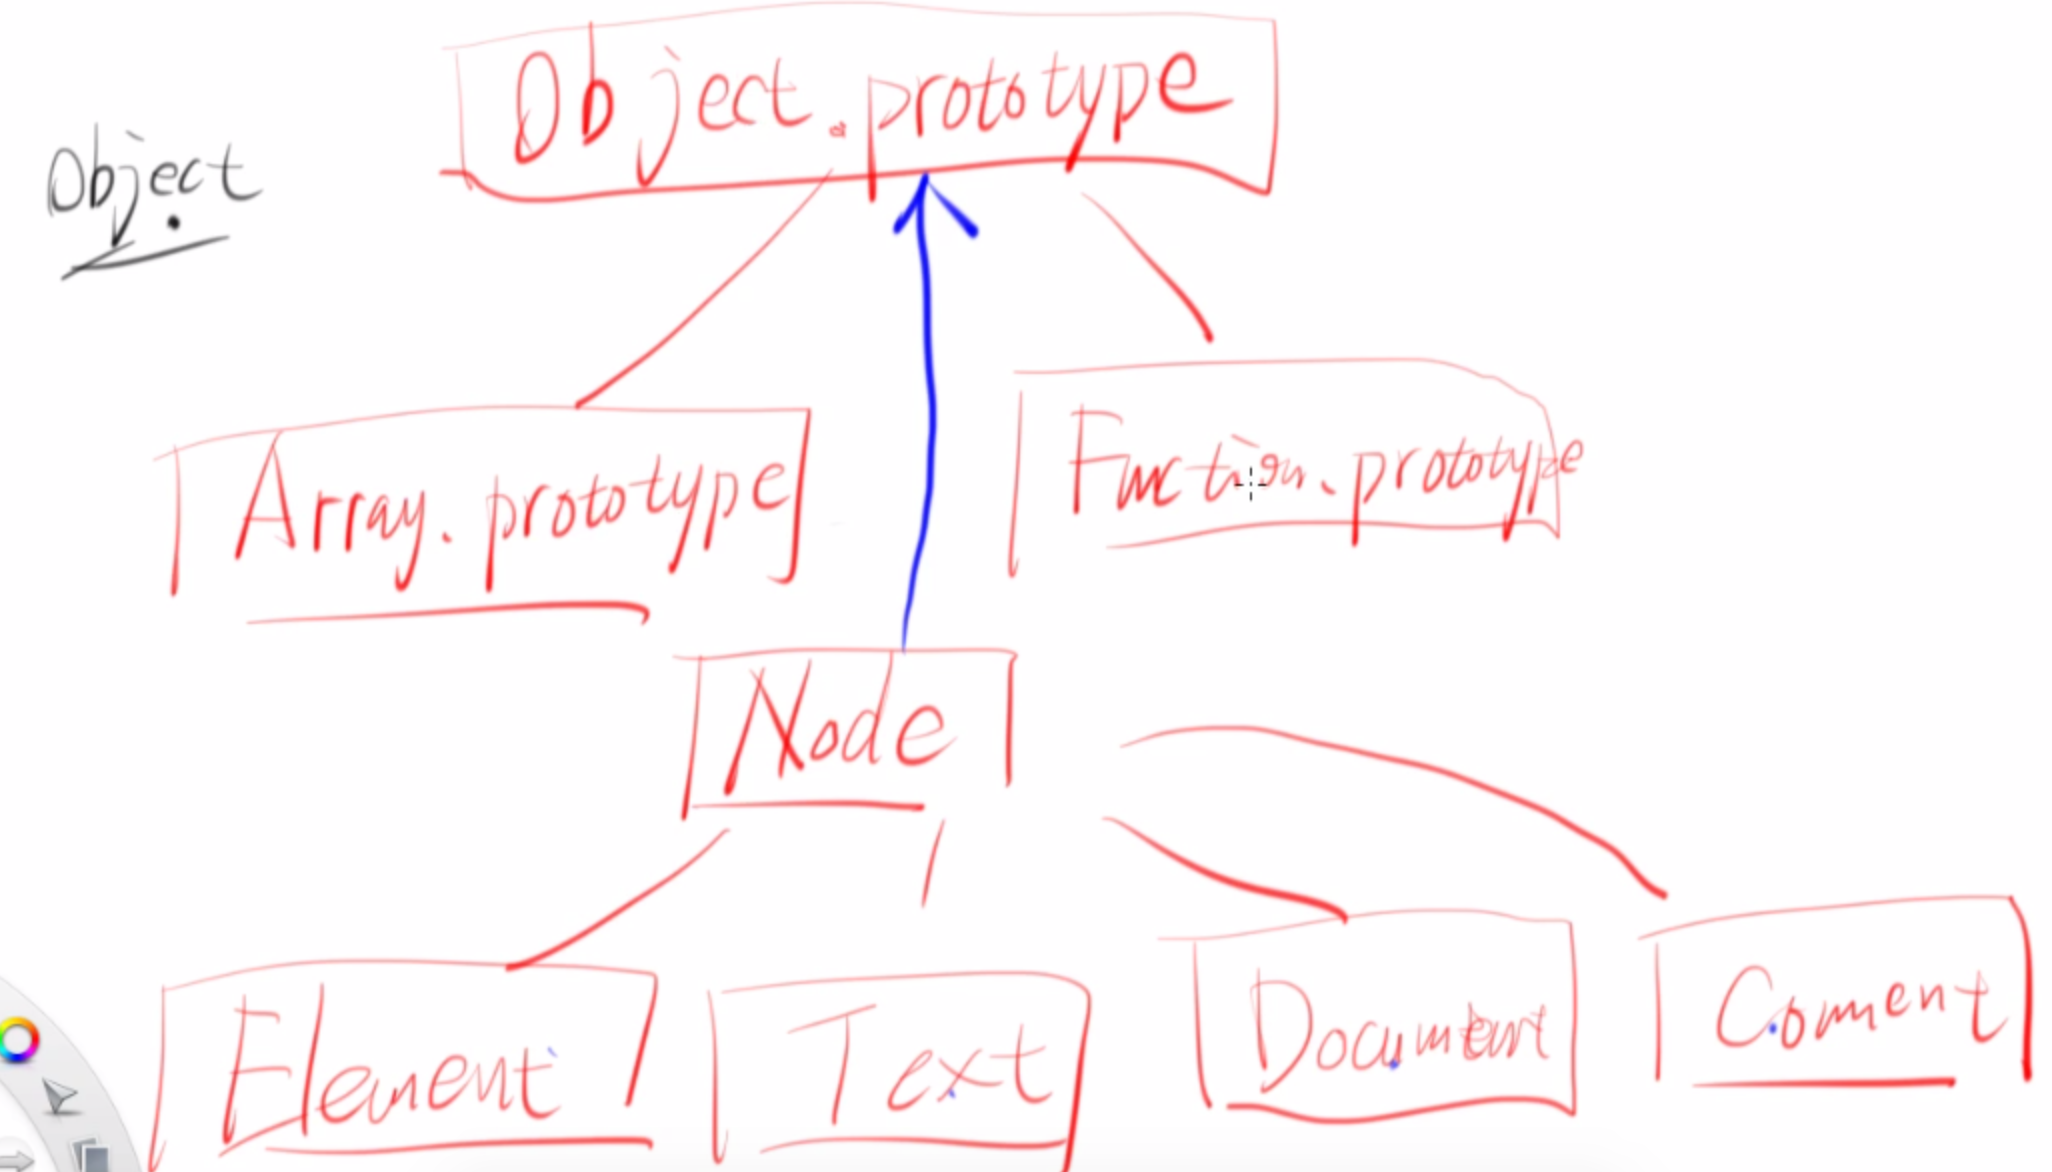 Object.prototype
Object
Array.prototype
Function.prototype
Node
Element
Text
Document
Coment